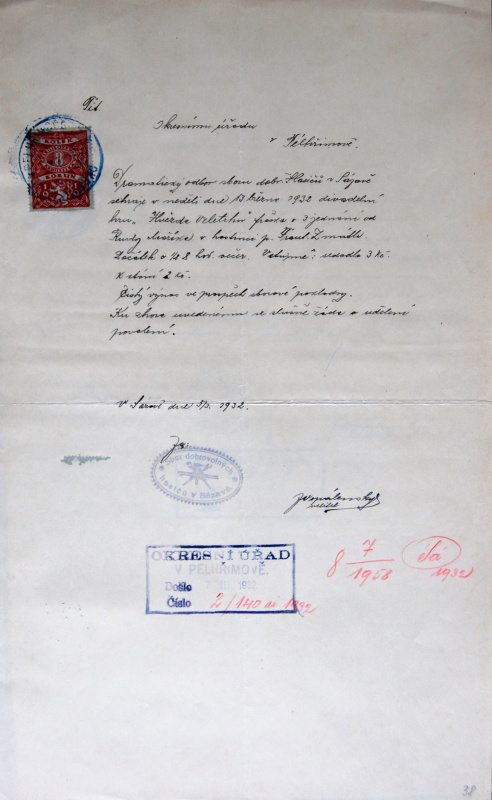 Tit.
Okresnímu úřadu
v Pelhřimově.
KOLEK
8
KORUN
Dramatický odbor sboru dobr. Hasičů v Sázavě
sehraje v neděli dne 13 března 1932 divadelní
hru „Hvězda Veletrhů" fraška o 3 jednání od
Rudy Maříka v hostinci p. Frant. Zmátla.
Začátek v ½8 hod. večer. Vstupné: sedadlo 3 kč.
k stání 2 kč.
Čistý výnos ve prospěch sborové pokladny.
Ku shora uvedenému se slušně žádá o udělení
povolení.
V Sázavě dne 5/3. 1932.
Za:
Sbor dobrovolných
hasičů v Sázavě.
velitel
OKRESNÍ ÚŘAD
V PELHŘIMOVĚ.
Došlo 1932
Číslo 2/140 ai 1932
8 7/1958 Tá 1932
38